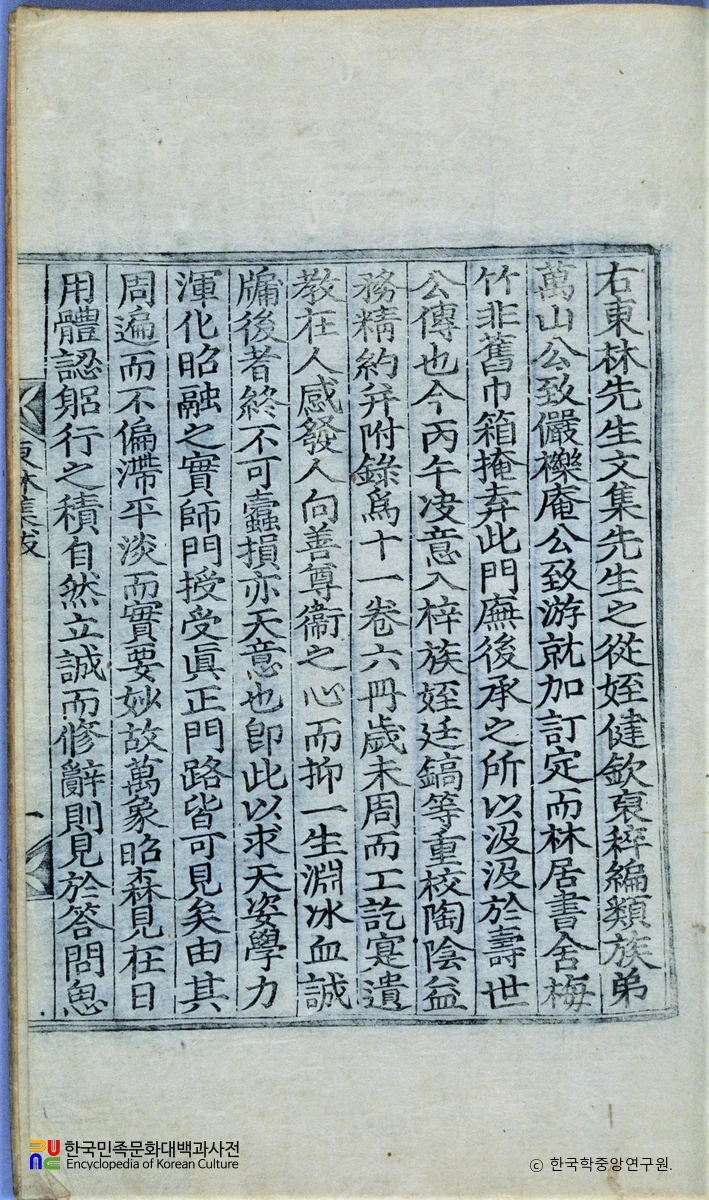 右東林先生文集先生之從姪健欽裒稡編類族弟
萬山公致儼櫟庵公致游就加訂定而林居書舍梅
竹非舊巾箱掩弆此門廡後承之所以汲汲於壽世
公傳也今丙午决意入梓族姪廷鎬等重校陶陰益
務精約弁附錄爲十一卷六冊歲未周而工訖寔遺
敎在人感發人向善尊衛之心而抑一生淵冰血誠
牖後者終不可蠹損亦天意也卽此以求天姿學力
渾化昭融之實師門授受眞正門路皆可見矣由其
周遍而不偏滯平淡而實要妙故萬象昭森見在日
用體認躳行之積自然立誠而修辭則見於答問恖
東林集跋 一
한국민족문화대백과사전
Encyclopedia of Korean Culture
ⓒ 한국학중앙연구원.